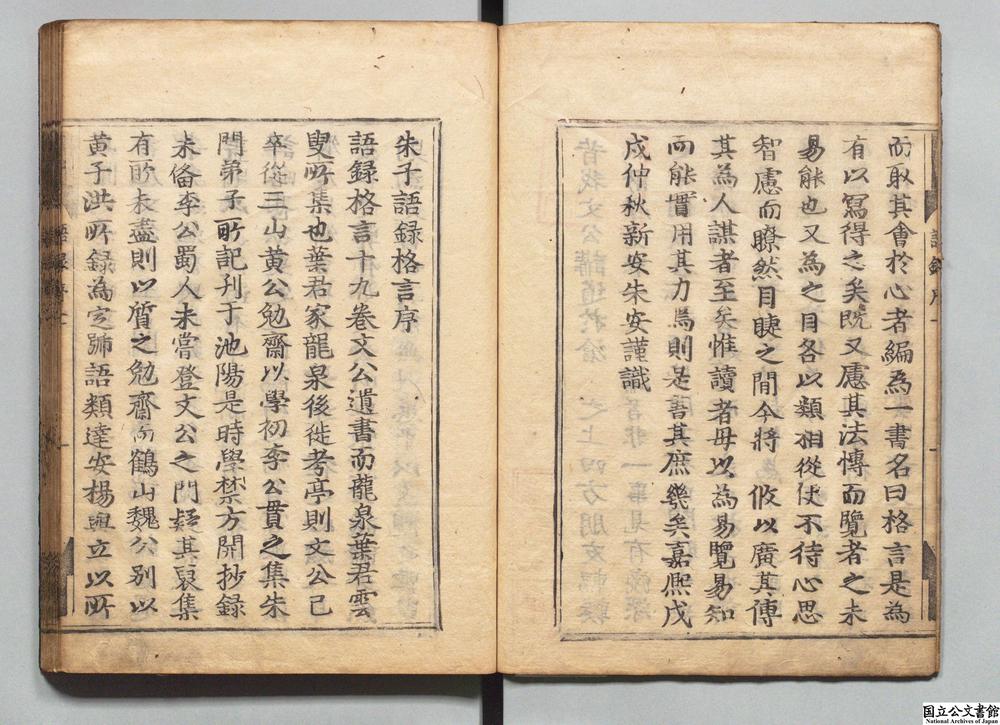 而取其會於心者編為一書名曰格言是為
有以寫得之矣既又慮其法慱而覽者之未
易能也又為之目各以類相從使不待心思
智慮而瞭然目睫之間今將攽以廣其傳
其為人謀者至矣惟讀者毋以為易覽易知
而能實用其力焉則是書其庶幾矣嘉熙戊
戌仲秋新安朱安謹識
朱子語録格言序
語録格言十九卷文公遺書而龍泉葉君雲
叟所集也葉君家龍泉後徙考亭則文公已
卒從三山黄公勉齋以學初李公貫之集朱
門弟子所記刋于池陽是時學禁方開抄録
未俻李公蜀人未嘗登文公之門疑其裒集
有所未盡則以質之勉齋而鶴山魏公别以
黄子洪所録為定號語類達安楊與立以所
國立公文書館
National Archives of Japan